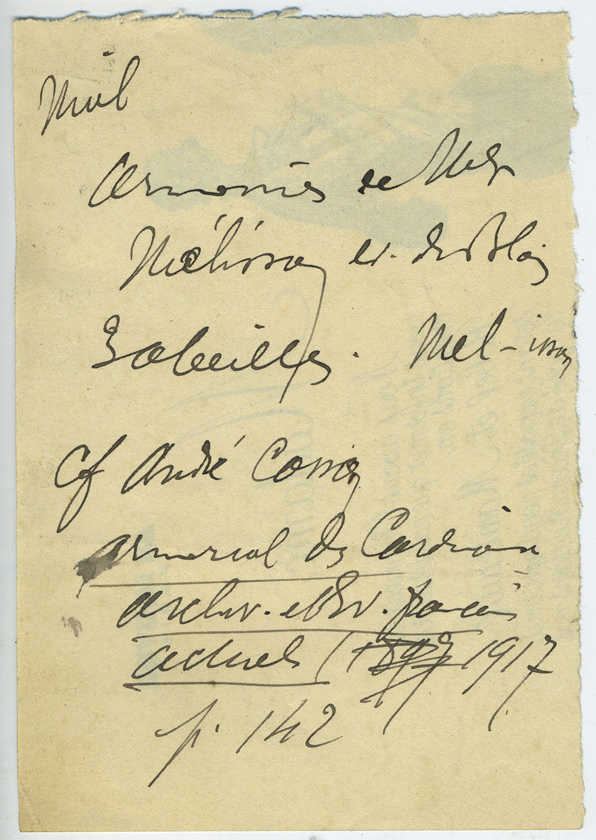 Miel
Armoiries de Mgr
Mélisson ev. de Blois
3 abeilles. Mel-isson
cf André Cosson
armorial des Cardinaux
archev. et Ev. français
actuels (1917
p. 142